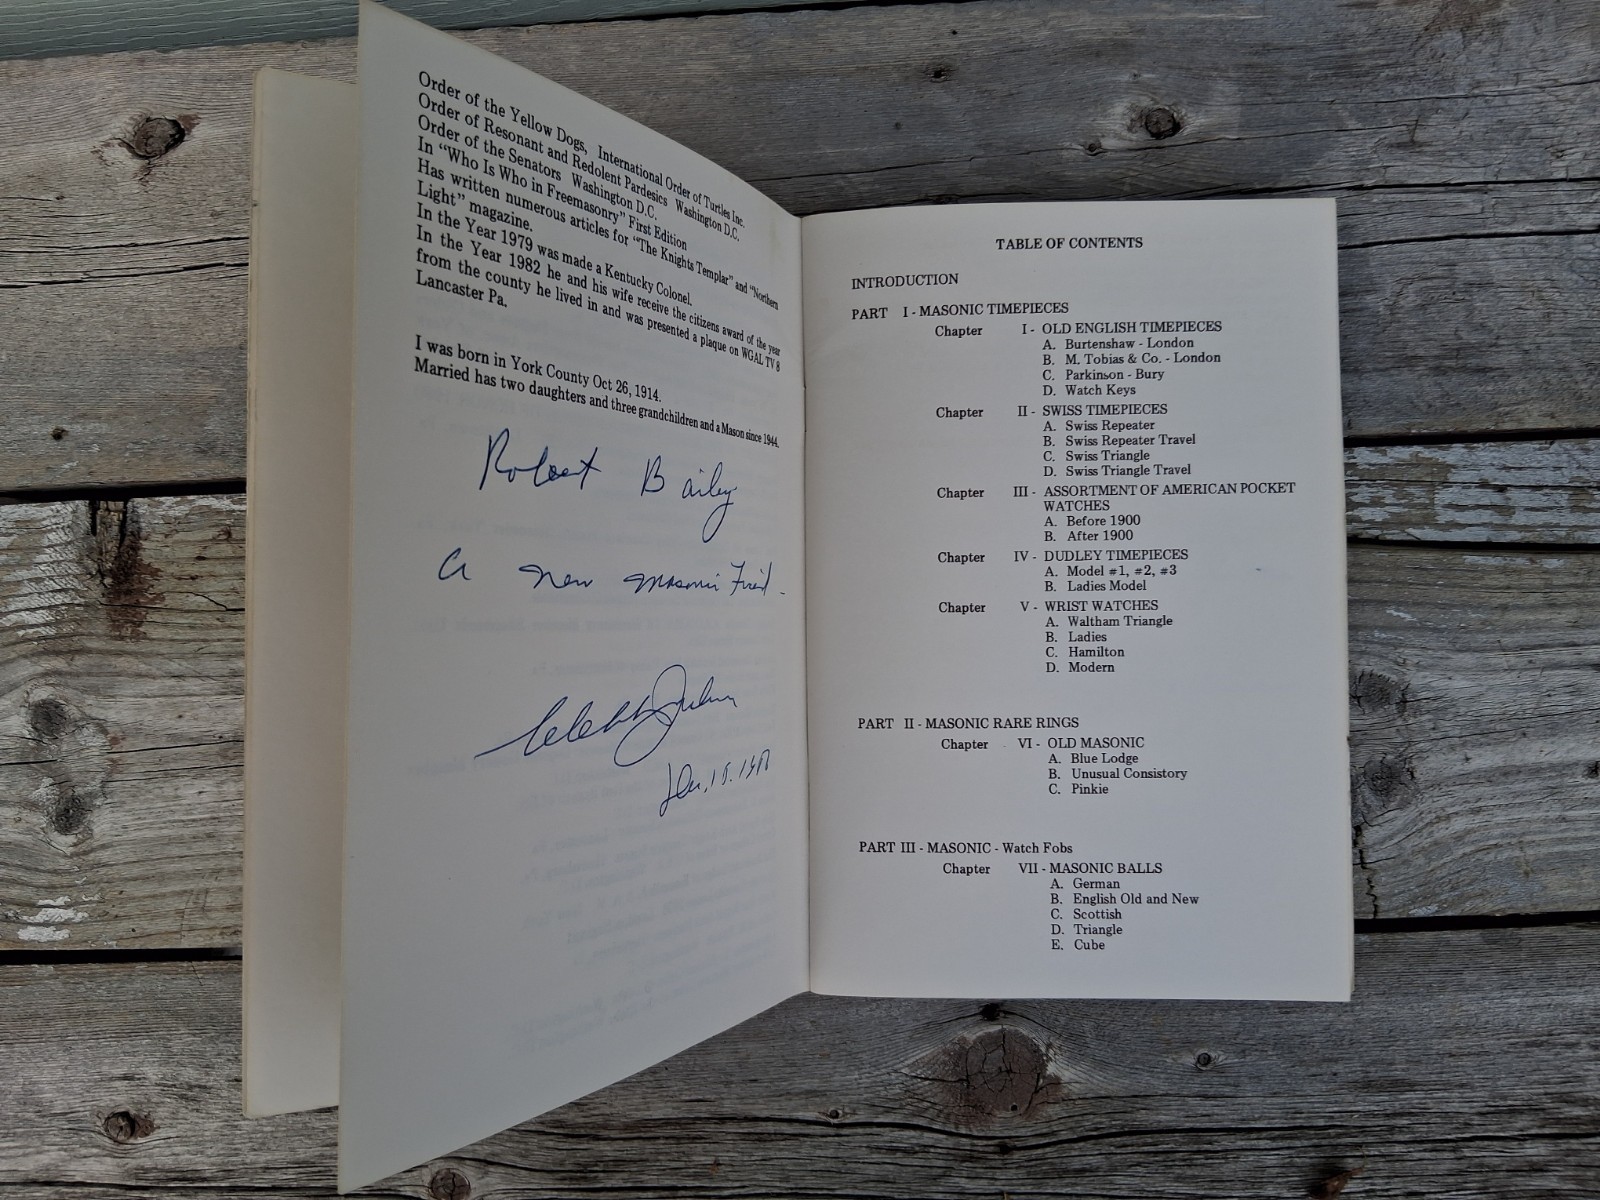 Order of the Yellow Dogs, International Order of Turtles Inc.
Order of Resonant and Redolent Pardesics Washington D.C.
Order of the Senators Washington D.C.
In "Who Is Who in Freemasonry" First Edition
Has written numerous articles for "The Knights Templar" and "Northern
Light" magazine.
In the Year 1979 was made a Kentucky Colonel.
In the Year 1982 he and his wife receive the citizens award of the year
from the county he lived in and was presented a plaque on WGAL TV 8
Lancaster Pa.
I was born in York County Oct 26, 1914.
Married has two daughters and three grandchildren and a Mason since 1944.
Robert Bailey
a new Masonic
TABLE OF CONTENTS
INTRODUCTION
PART I - MASONIC TIMEPIECES
Chapter I - OLD ENGLISH TIMEPIECES
A. Burtenshaw - London
B. M. Tobias & Co. - London
C. Parkinson - Bury
D. Watch Keys
Chapter II - SWISS TIMEPIECES
A. Swiss Repeater
B. Swiss Repeater Travel
C. Swiss Triangle
D. Swiss Triangle Travel
Chapter III - ASSORTMENT OF AMERICAN POCKET
WATCHES
A. Before 1900
B. After 1900
Chapter IV - DUDLEY TIMEPIECES
A. Model #1, #2, #3
B. Ladies Model
Chapter V - WRIST WATCHES
A. Waltham Triangle
B. Ladies
C. Hamilton
D. Modern
PART II - MASONIC RARE RINGS
Chapter VI - OLD MASONIC
A. Blue Lodge
B. Unusual Consistory
C. Pinkie
PART III - MASONIC - Watch Fobs
Chapter VII - MASONIC BALLS
A. German
B. English Old and New
C. Scottish
D. Triangle
E. Cube